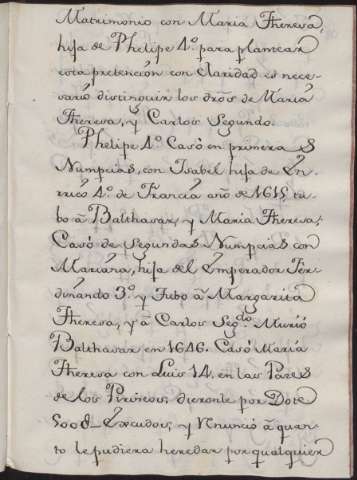 Matrimonio con Maria Theresa,
hija de Phelipe 4º para plantear
esta pretención con claridad es nece-
sario distinguir los dros de Maria
Theresa, y Carlos Segundo.
Phelipe 4º Casó en primeras
Numpcias, con Isabel hija de En-
rrico 4º de Francia año de 1615, tu-
bo â Balthasar, y Maria Theresa;
Casó de Segundas Numpcias con
Mariana, hija del Emperador Fer-
dinando 3º y Tubo â Margarita
Theresa, y â Carlos Segdo. Murió
Balthasar en 1646. Casó Maria
Theresa con Luis 14. en las Pazes
de los Pirineos, dieronle por Dote
500 Escudos, y Rnunció â quan-
to le pudiera heredar por qualquier